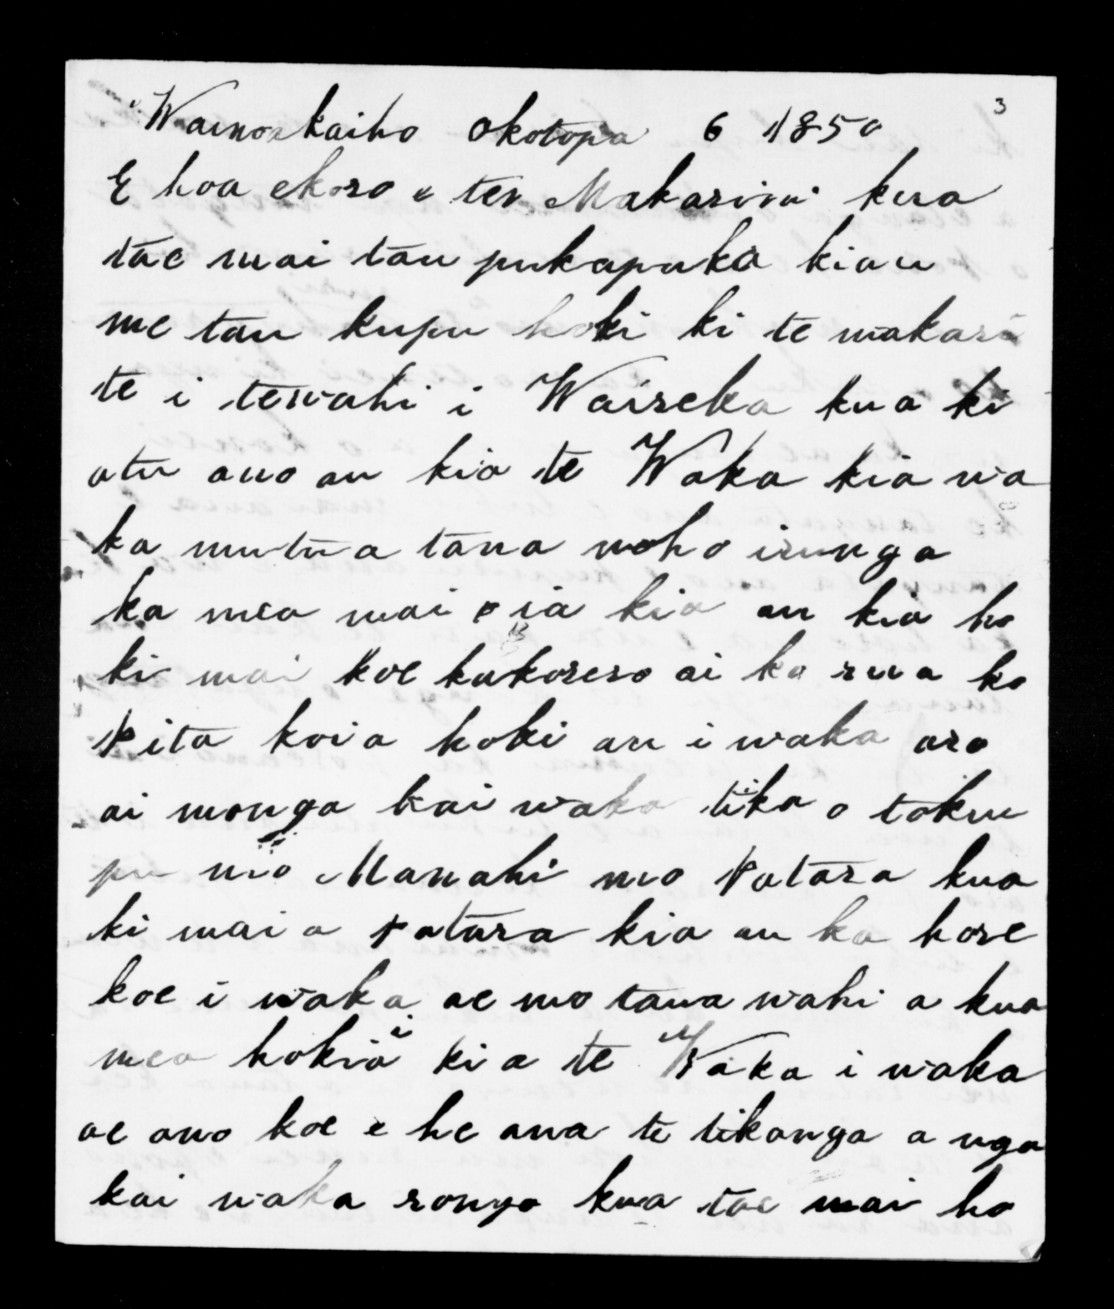 3
Wainoskaiho Okotopa 6 1850
E hoa ekoro e ten Makarini kua
tae mai tau pukapuka kiau
me tau kupu hoki ki te makari
te i tewahi i Waireka kua ki
atu ano au kia te Waka kia wa
ka mutu a tana noho irunga
ka mea mai o ia kia au kia ho
ki mai koe kakorero ai ka rua ko
Pita koia hoki au i waka aro
ai monga kai waka tika o toku
pu mo Manahi mo Patara kua
ki mai a Patara kia au ka hore
koe i waka ae mo taua wahi a kua
mea hokiia kia te Waka i waka
ae ano koe e he ana te tikanga a nga
kai waka rongo kua tae mai ho